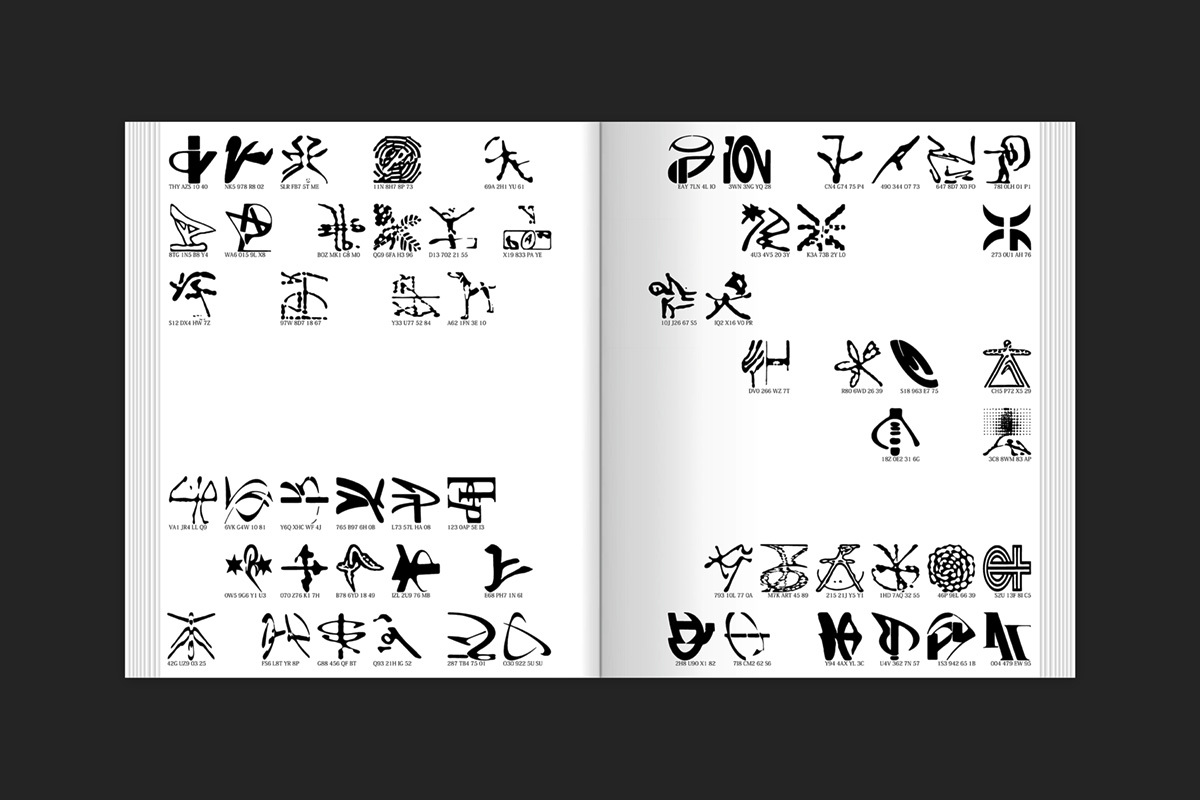 THY AZS 10 40
NK5 978 R8 02
SLR FB7 5T ME
11N 8H7 8P 73
69A 2H1 YU 61
8TG 1N5 B8 Y4
WA6 015 9L X8
BOZ MK1 G8 M0
QG9 6FA H3 96
D13 702 21 55
X19 833 PA YE
S12 DX4 HW 7Z
97W 8D7 18 67
Y33 U77 52 84
A62 1FN 3E 10
VA1 JR4 LL Q9
6VK G4W 10 81
Y6Q XHC WF 4J
765 B97 6H 0B
L73 57L HA 08
123 0AP 5E I3
0W5 9G6 Y1 U3
070 Z76 K1 7H
B78 6YD 18 49
IZL 2U9 76 MB
E68 PH7 1N 6I
42G UZ9 03 25
FS6 L8T YR 8P
G88 456 QF BT
Q93 21H IG 52
287 TB4 75 01
O30 922 5U SU
EAY 7LN 4L IO
3WN 3NG YQ 28
CN4 G74 75 P4
490 344 O7 73
647 8D7 X0 FO
78I 0LH O1 P1
4U3 4V5 20 3Y
K3A 73B ZY L0
273 0U1 AH 76
10J J26 67 S5
IQ2 X16 V0 PR
DV0 266 WZ 7T
R80 6WD 26 39
S18 963 E7 75
CH5 P72 X5 29
18Z 0E2 31 6G
3C8 8WM 83 AP
793 10L 77 0A
M7K ART 45 89
215 21J Y5 Y1
1HD 7AQ 32 55
46P 9EL 66 30
52U 13F 8I C5
2H8 U90 X1 82
7I8 CM2 62 S6
Y94 4AX YL 3C
U4V 362 7N 57
1S3 942 65 1B
004 479 EW 95